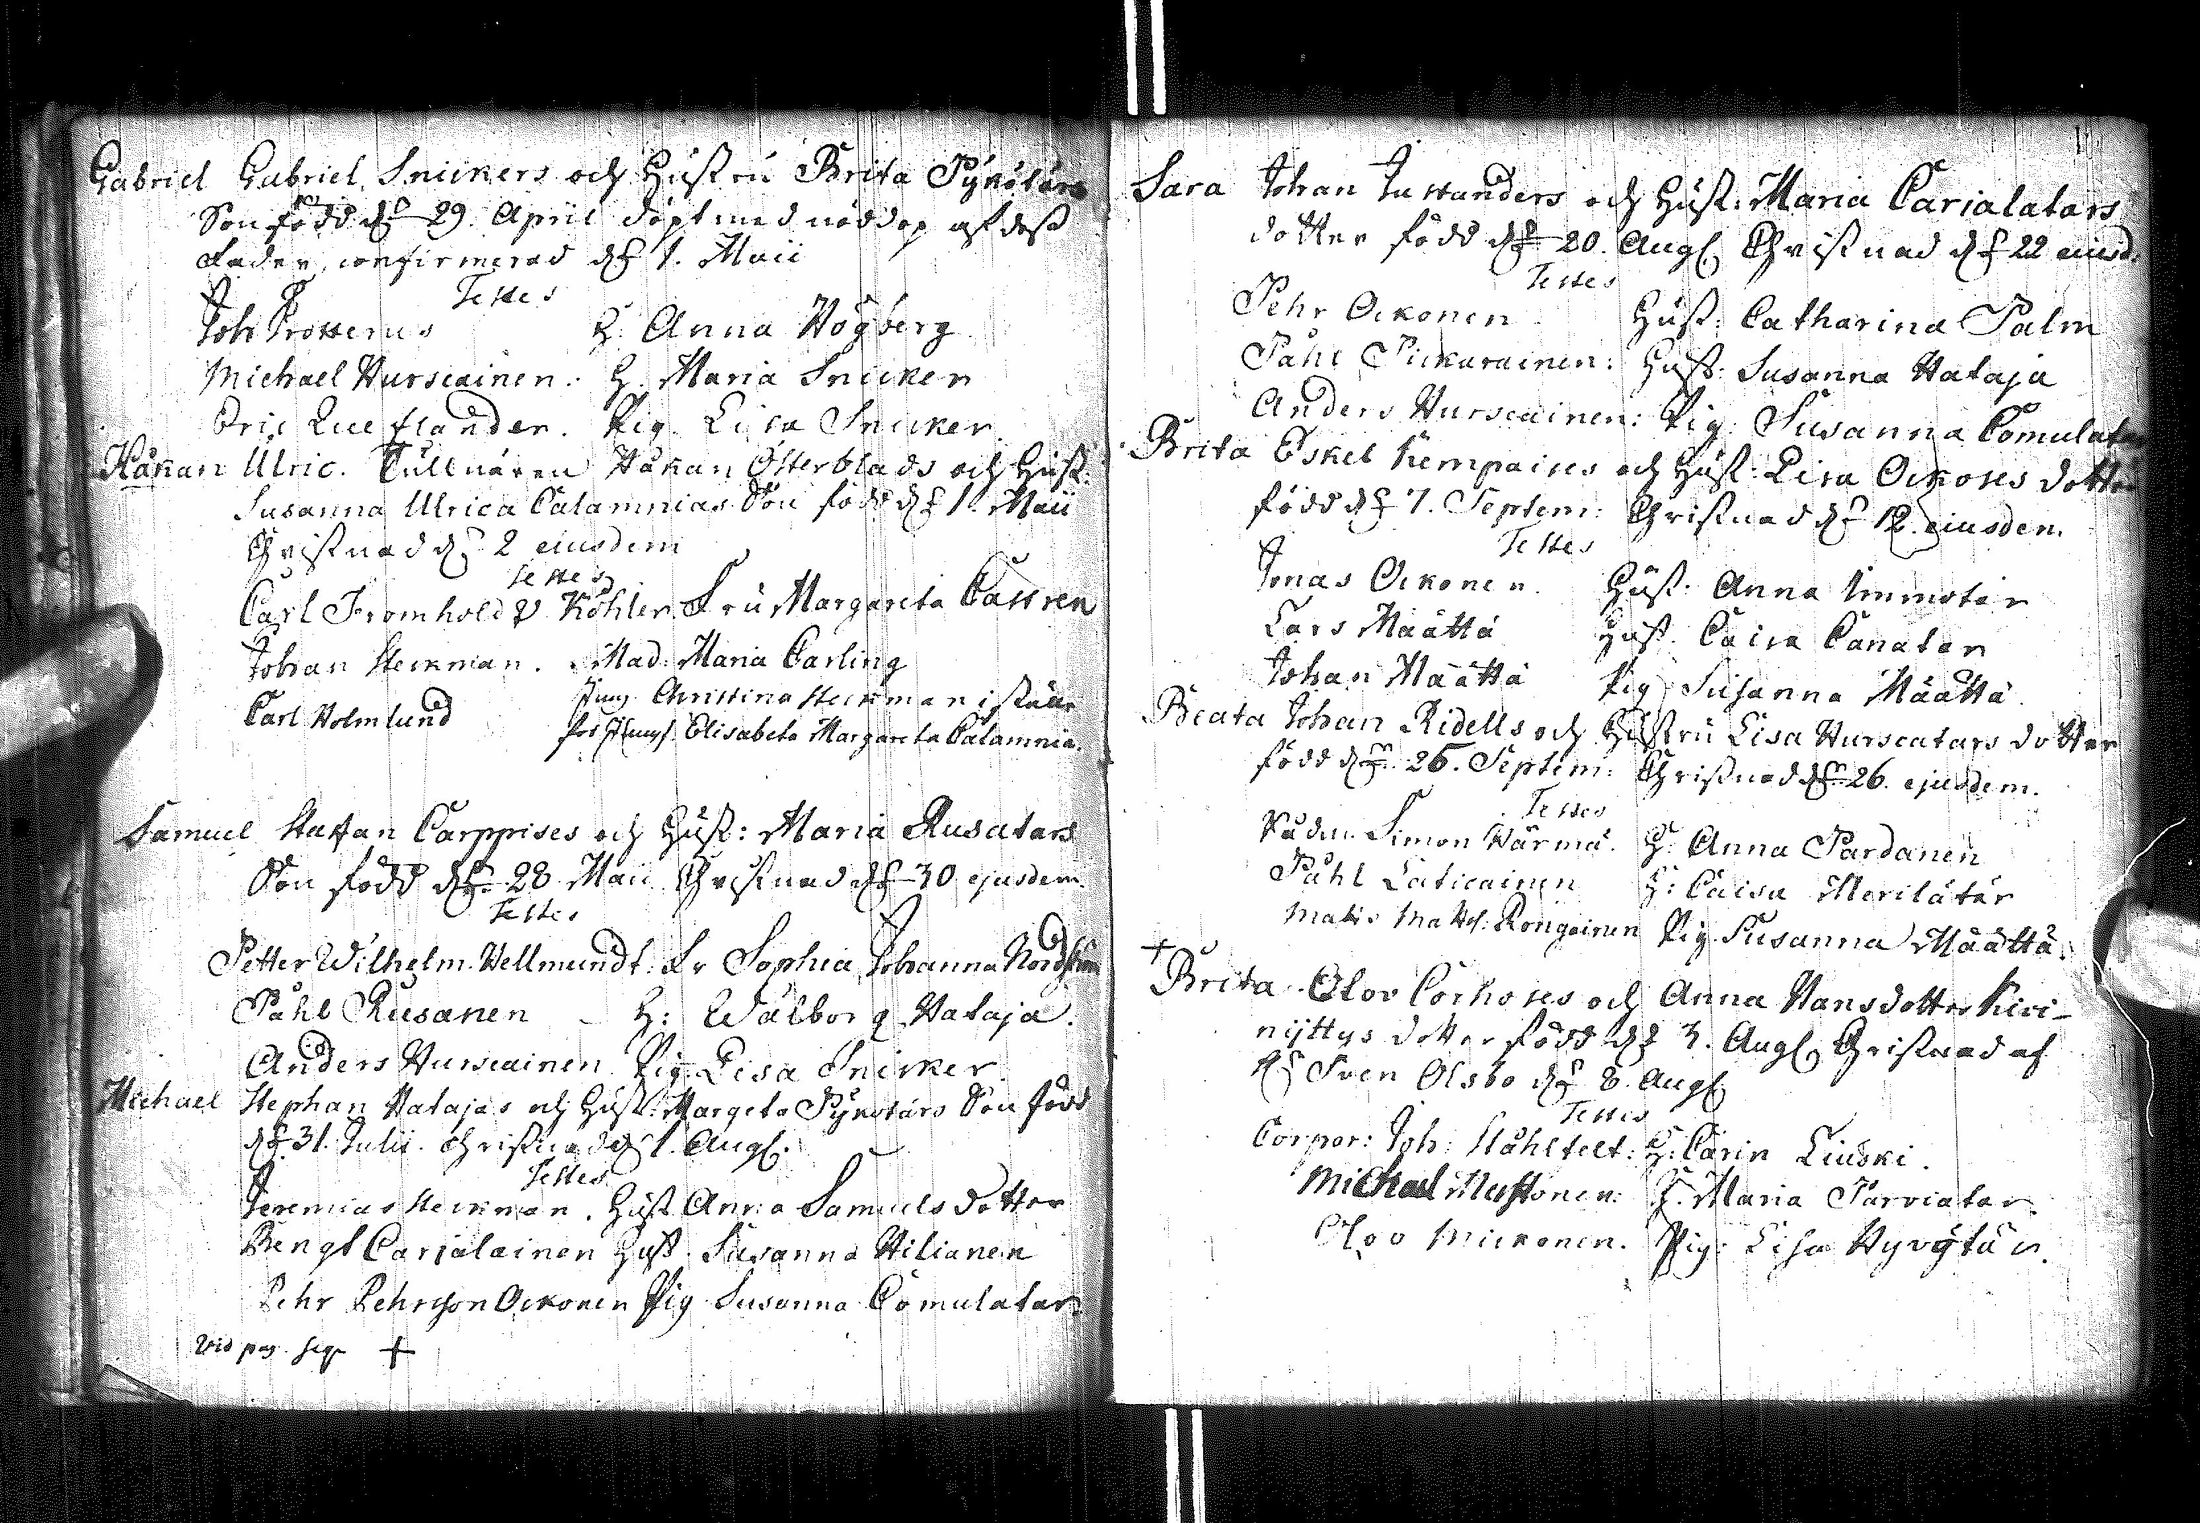 Gabriel Gabriel Snickers och Hustru Brita Pykötärs
Son född d. 29. April döpt med nöddop af dess
Fader, confirmerad d. 1. Maii
Testes
Joh Prosserus H. Anna Högberg
Michael Hurscainen. H. Maria Snicker
Eric Lueflander. Pig. Lisa Snicker.
Håkan Ulric. Tullnären Håkan Österblads och Hust.
Susanna Ulrica Calamnias Son född d. 1. Maii
Christnad d. 2 eiusdem
Testes
Carl Fromhold v. Köhler Fru Margareta Castren
Johan Heickman. Mad: Maria Carling
Carl Holmlund Jung Christina Heickman i ställe
för Jungf. Elisabeta Margareta Calamnia.
Samuel Staffan Carppises och Hust: Maria Rusatars
Son född d. 28 Maii Christnad d. 30 ejusdem.
Testes
Petter Wilhelm Hellmundt. Fr Sophia Johanna Nordström
Påhl Rusanen H: Walborg Hataja.
Anders Hurscainen Pig. Lisa Snicker.
Michael Stephan Hatajas och Hust: Margeta Pykötärs Son född
d. 31. Julii. Christnad d. 1. Aug.
Testes
Jeremias Heickman. Hust Anna Samuels dotter
Bengt Carjalainen Hust. Susanna Hilianen
Pehr Pehrsson Ockonen Pig Susanna Comulatar
Vid pag. seq +
Sara Johan Justanders och Hust: Maria Carjalatars
dotter född d. 20. Aug. Christnad d. 22 eiusd.
Testes
Pehr Ockonen Hust: Catharina Palm
Påhl Pickarainen: Hust: Susanna Hataja
Anders Hurscainen: Pig: Susanna Comulatar
Brita Eskel Kempaises och Hust: Lisa Ockoses dotter
född d. 7. Septem: Christnad d. 12. eiusdem.
Testes
Jonas Ockonen. Hust: Anna Immotar
Lars Määttä Hust. Caisa Canatar
Johan Määttä Pig Susanna Määttä.
Beata Johan Ridells och Hustru Lisa Hurscatars dotter
född d. 25. Septem: Christnad d. 26. ejusdem.
Testes
Simon Härmä. H: Anna Pardanen
Påhl Laticainen H: Caisa Merilätär
Matts Matts: Rongainen Pig. Susanna Määttä.
+
Brita Olov Corhoses och Anna Hansdotter Kiri-
nijttys dotter född d. 3. Aug. Christnad af
H. Sven Olsbo d. 8. Aug
Testes
Corpor: Joh: Ståhlfelt: H: Carin Liuski.
Michael Mustonen: H. Maria Parviatar
Olov Mickonen. Pig: Lisa Hyvytär.